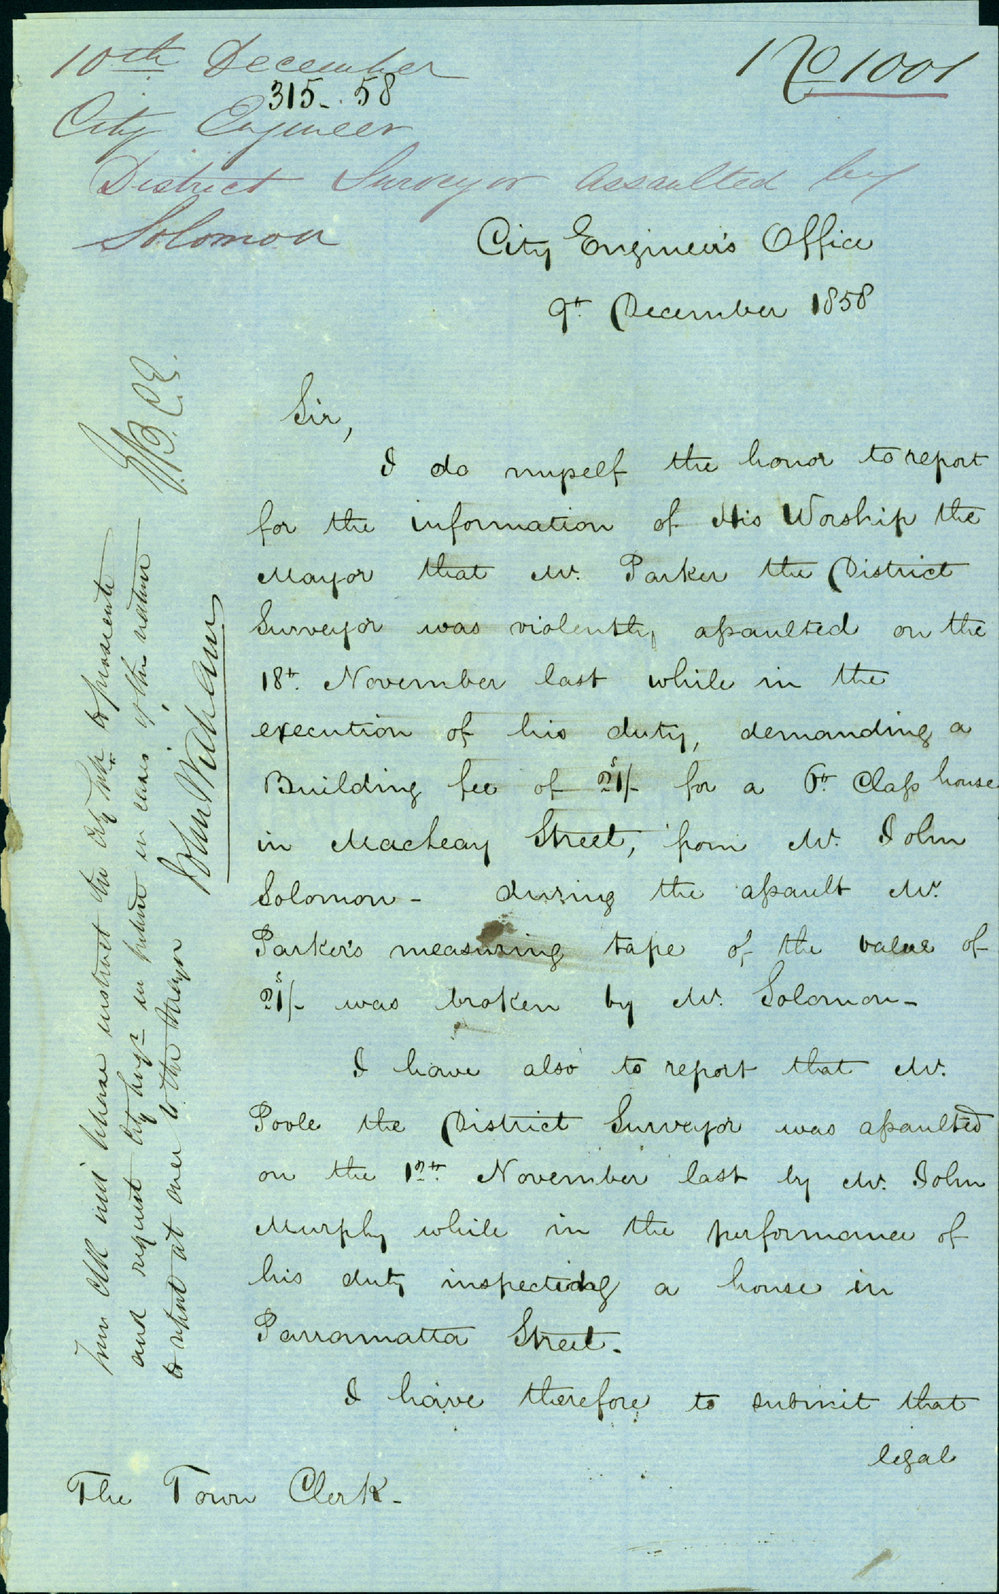 10th December
No 1001
315-.58
City Engineer
District Surveyor assaulted by
Solomon
City Engineer's Office
9th December 1858
Sir,
I do myself the honor to report
for the information of His Worship the
Mayor that Mr. Parker the District
Surveyor was violently assaulted on the
18th November last while in the
execution of his duty, demanding a
Building fee of 21/- for a 6th Class house
in Macleay Street, from Mr. John
Solomon - during the assault Mr.
Parker's measuring tape of the value of
21/- was broken by Mr. Solomon -
I have also to report that Mr.
Poole the District Surveyor was assaulted
on the November last by Mr. John
Murphy while in the performance of
his duty inspecting a house in
Parramatta Street -
I have therefore to submit that
legal
The Town Clerk -
Town Clk will please instruct the City to prosecute
and request City Engr in future in cases of this nature
to report at once to the Mayor
John Williams